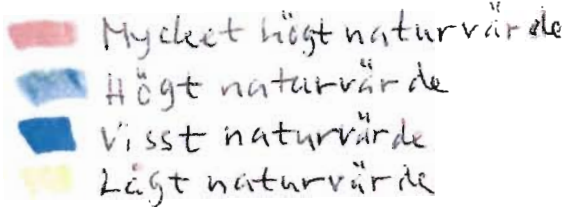 Mycket högt naturvärde
Högt naturvärde
Visst naturvärde
Lågt naturvärde